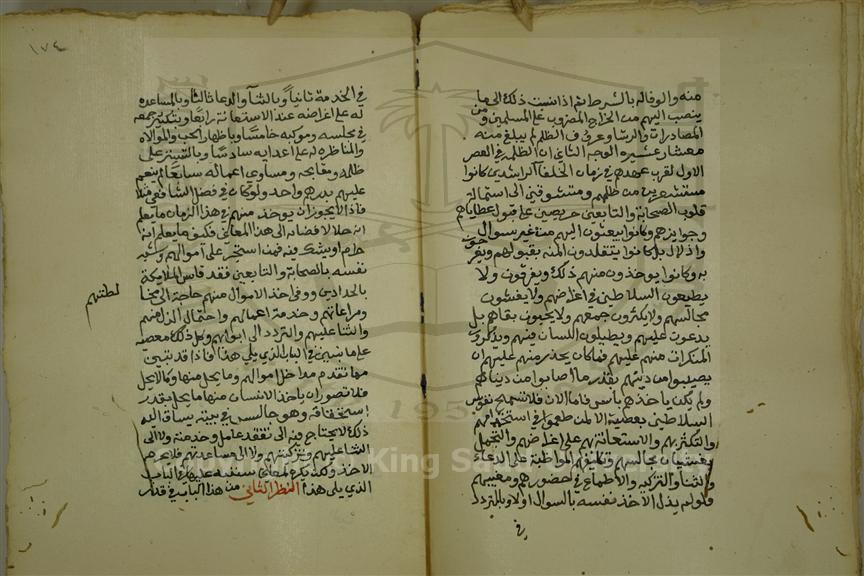 منه والوفاله بالشرط ثم اذا نسبت ذلك الى ما
ينصب اليهم من الخراج المضروب على المسلمين ومن
المصادرات والرشا وصنوف الظلم لم يبلغ منه
معشار عشيره الوجه الثاني ان الظلمه في العصر
الاول لقرب عهدهم في زمان الخلفا الراشدين كانوا
مستشعرين من ظلمهم ومتشوفين الى استمالة
قلوب الصحابة والتابعين حريصين على قبول عطاياهم
وجوايزهم وكانوا يبعثون اليهم من غير سوال
واذلال بل كانوا يتقلدون المنة بقبولهم ويفرحون
به وكانوا يوخذون منهم ذلك ويفرقون ولا
يطيعون السلاطين في اغراضهم ولا يغشون
مجالسهم ولا يكثرون جمعهم ولا يحبون بقاهم بل
يدعون عليهم ويطيلون اللسان فيهم وينكرون
المنكرات منهم عليهم فما كان يحذر منهم عليهم ان
يصيبوا من دينهم بقدر ما اصابوا من دنياهم
ولم يكن ياخذهم باس فاما الان فلا تسمح نفوس
السلاطين بعطية الا لمن طمعوا في استخدامهم
والتكثر بهم والاستعانة بهم على اغراضهم والتجمل
بغشيان مجالسهم وتكليفهم المواظبة على الدعاء
والثنا والتزكية والاطماع في حضورهم ومغيبهم
فلو لم يذل الاخذ نفسه بالسوال اولا وبالتردد
في
١٧٤
في الخدمة ثانيا وبالثنا والدعا ثالثا وبالمساعده
له على اغراضه عند الاستعانة رابعا وبتكثير جمعه
في مجلسه وموكبه خامسا وباظهار الحب والموالاه
والمناظره له على اعدايه سادسا وبالتستر على
ظلمه ومقابحه ومساوي اعماله سابعا لم ينعم
عليهم بدرهم واحد ولو كان في فضل الشافعي مثلا
فاذا لا يجوز ان يوخذ منهم في هذا الزمان ما يعلم
انه حلال لافضايه الى هذه المعاني فكيف ما يعلم انه
حرام او يشك فيه فمن استجر على اموالهم وشبه
نفسه بالصحابة والتابعين فقد قاس الملايكة
بالحدادين ووفي اخذ الاموال منهم حاجة الى مخا
لطتهم
ومراعاتهم وخدمة اعمالهم واحتمال الذل منهم
والثنا عليهم والتردد الى ابوابهم وكل ذلك معصيه
على ما نبين في الباب الذي يلي هذا فاذا قد تبين
مما تقدم مداخل اموالهم وما يحل منها وما لا يحل
فلا تصور ان ياخذ الانسان منها ما يحل بقدر
استحقاقه وهو جالس في بيته يساق اليه
ذلك لا يحتاج فيه الى تفقد عامل وخدمته ولا الى
الثنا عليهم وتزكيتهم ولا الى مساعدتهم فلا يحرم
الاخذ ولكن يكره لمعاني سننبه عليها في الباب
الذي يلي هذا النظر الثاني من هذا الباب في قدر
King